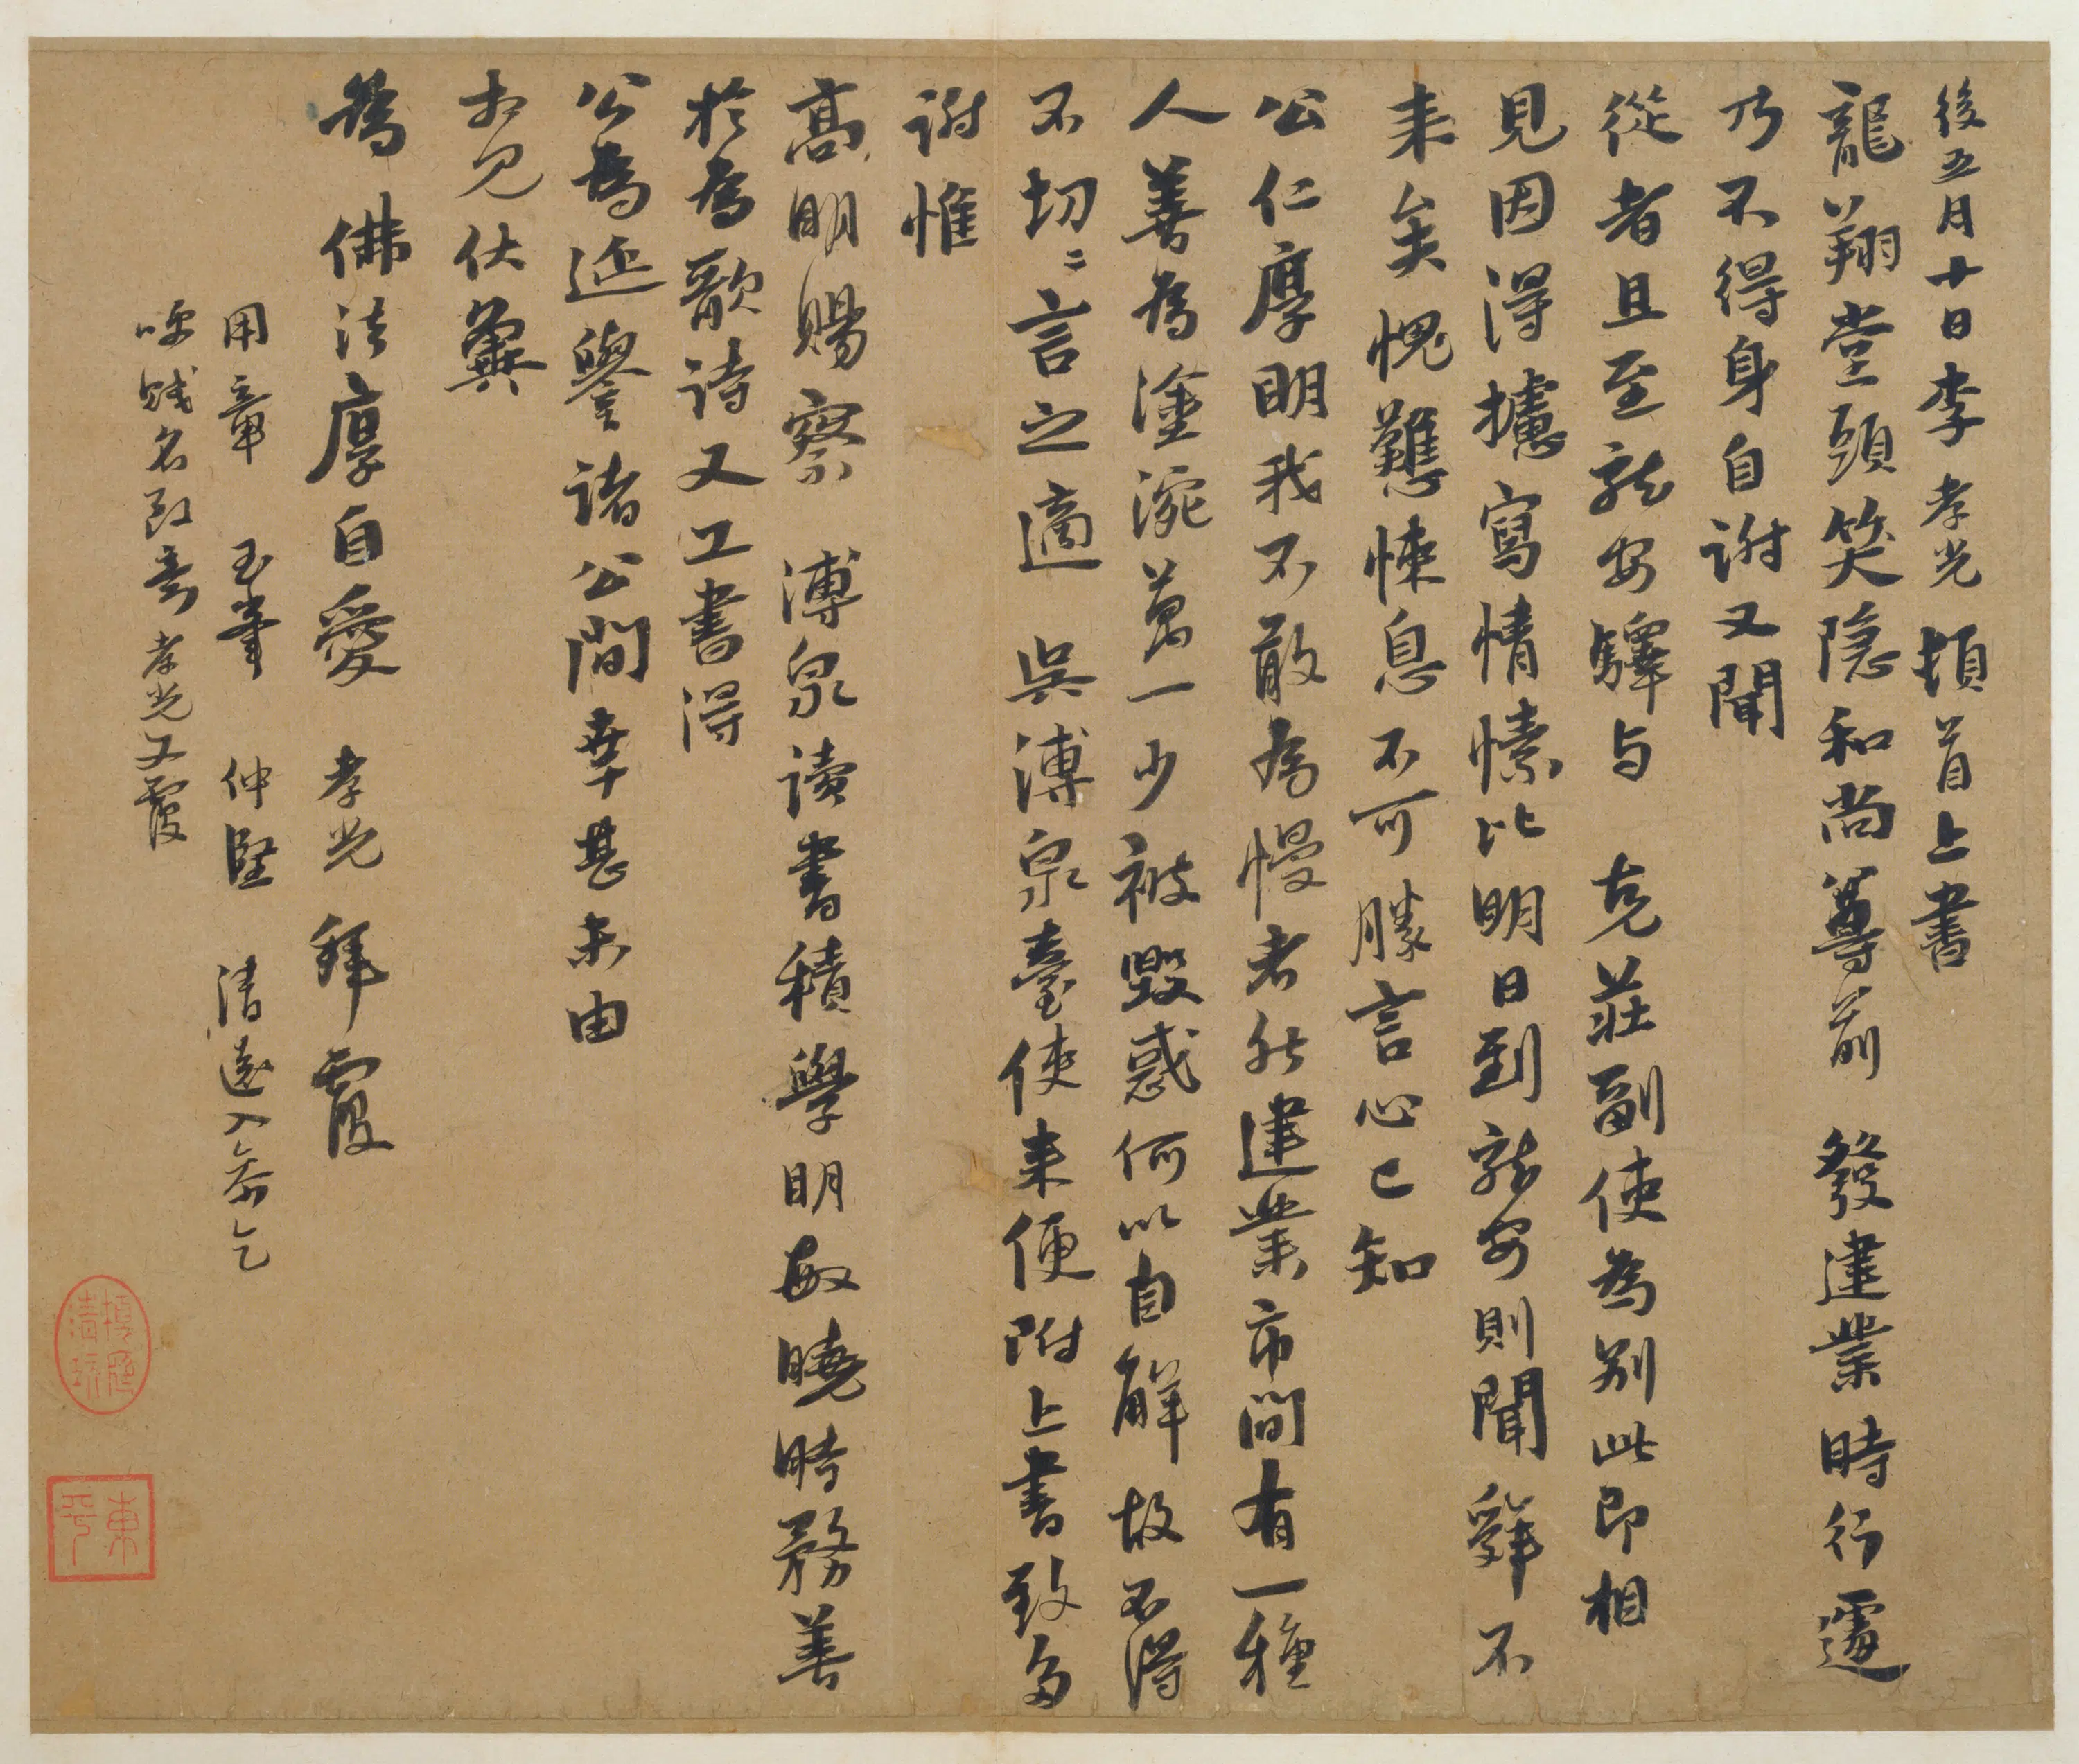 後五月十日李孝光頓首上書
龍翔堂頭笑隐和尚尊前發建業時行遽
乃不得身自謝又聞
從者且至龍安驛与克莊副使為别此即相
見因得攄寫情愫比明日到龍安則聞舜不
来矣愧戁悚息不可勝言心已知
公仁厚明我不敢為慢者然建業市間有一種
人善為塗涴萬一少被毀惑何以自解故不得
不切〻言之適吳溥泉臺使来便附上書致多
謝惟
髙明賜察溥泉讀書積學明敏曉時務善
於為歌詩又工書得
公為延譽諸公間幸甚未由
相見伏冀
為佛法厚自愛孝光拜覆
用章玉峯仲堅清遠入希乞
呼賤名致意孝光又覆
東平